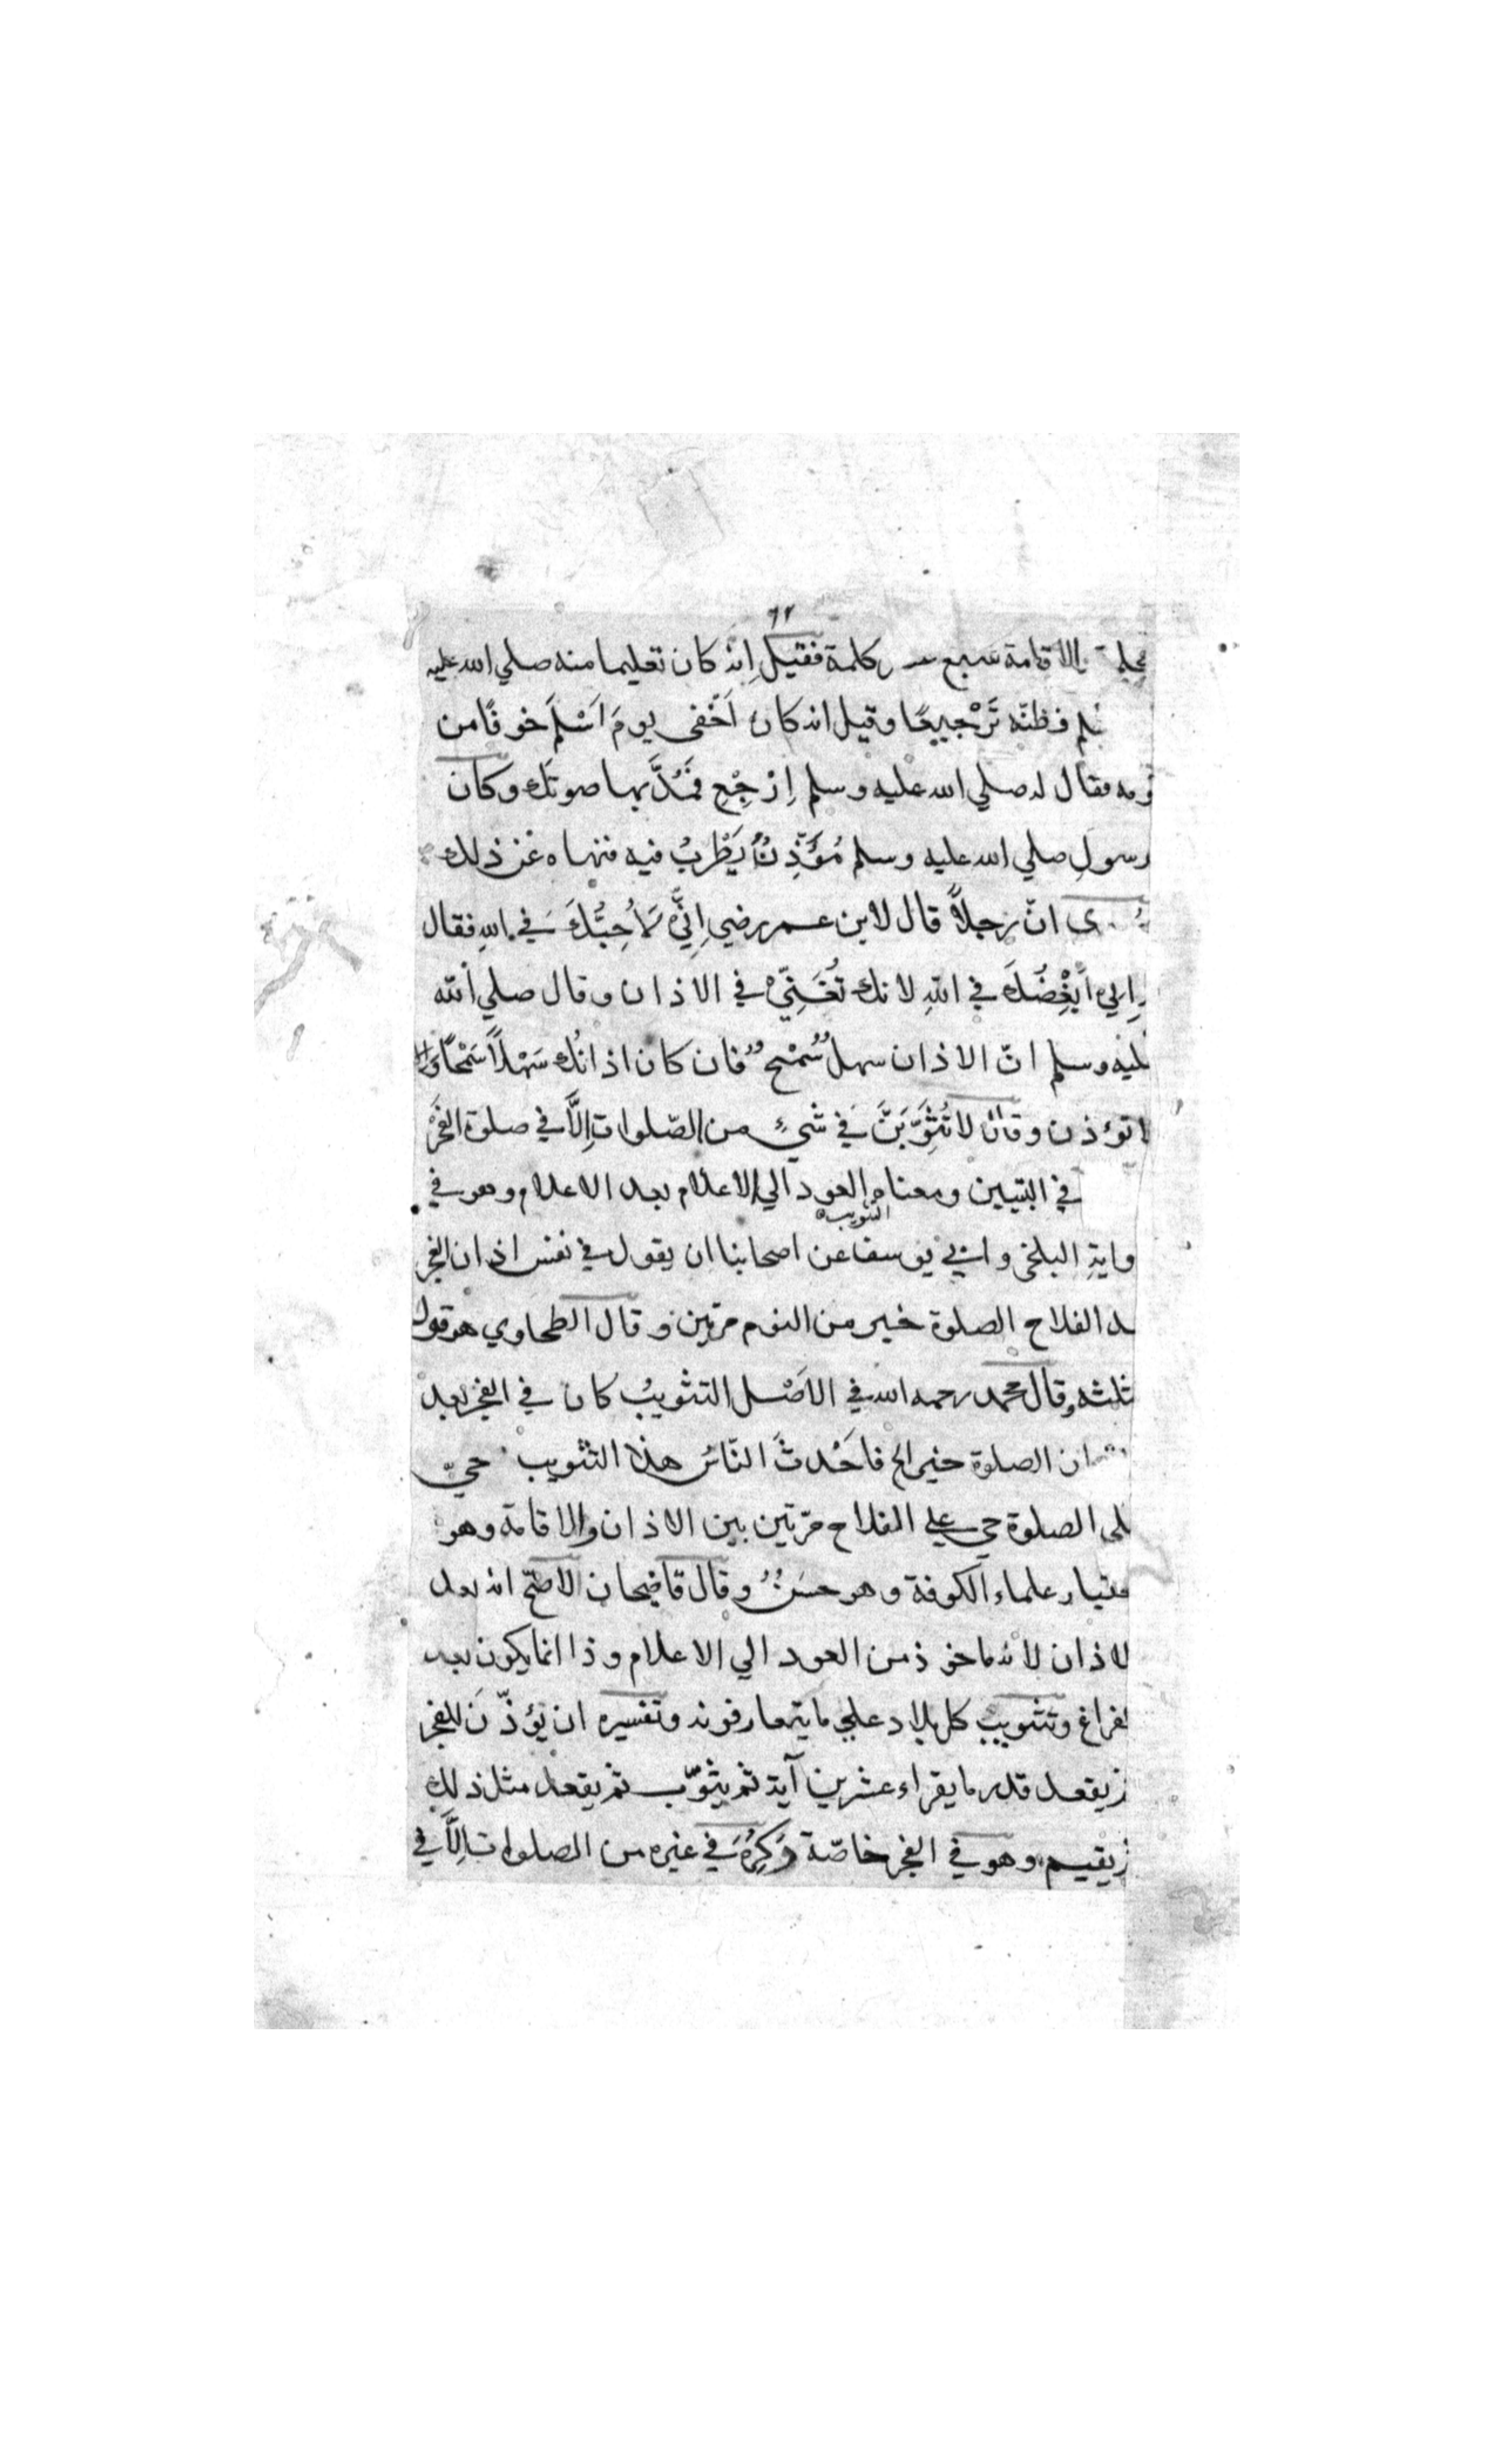 ٦٢
الاقامة سبع كلمة فقيل انه كان تعليما منه صلي الله عليه
فظنّه تَرْجيعًا وقيل انه كان اَخْفى يومَ اَسْلَمَ خوفًا من
فقال له صلي الله عليه وسلم اِرْجِعْ فَمُدَّ بها صوتك وكان
رسولِ صلي الله عليه وسلم مُؤَذِّنٌ يَطْرِبُ فيه فنهاه عن ذلك
انّ رجلاً قال لابن عمر رضي اِنّي لَاُحِبُّكَ في اللهِ فقال
اُبْغِضُكَ في اللهِ لانك تُغَنِّي في الاذان وقال صلي الله
عليه وسلم انّ الاذان سهلٌ سَمْحٌ فان كان اذانُك سَهْلاً سَمْحًا وَالا
تؤذن وقال لا تُثَوِّبَنَّ في شيءٍ من الصّلواتِ اِلَّا في صلوة الفَجْر
في التبيين ومعناه العود الي الاعلام بعد الاعلام وهو في
التثويب
البلخي وابي يوسف عن اصحابنا ان يقول في نفس اذان الفجر
الفلاح الصلوة خير من النوم مرتين وقال الطحاوي هو قول
وقال محمد رحمه الله في الاَصْل التثويبُ كان في الفجر بعد
الصلوة خير الخ فاَحْدثَ النّاسُ هذا التثويب حيّ
الصلوة حي علي الفلاح مرّتين بين الاذان والاقامة وهو
علماء الكوفة وهو حسَنٌ وقال قاضيخان الاصحّ انه بعد
الاذان لانه ماخوذ من العود الي الاعلام وذا انما يكون بعد
وتثويب كل بلاد علي ما يتعارفونه وتفسيره ان يؤذّنَ للفجر
يقعد قدر ما يقراء عشرين آية ثم يثوّب ثم يقعد مثل ذلك
يقيم وهو في الفجر خاصّة وَكُرِهَ في غيره من الصلوات اِلَّا في